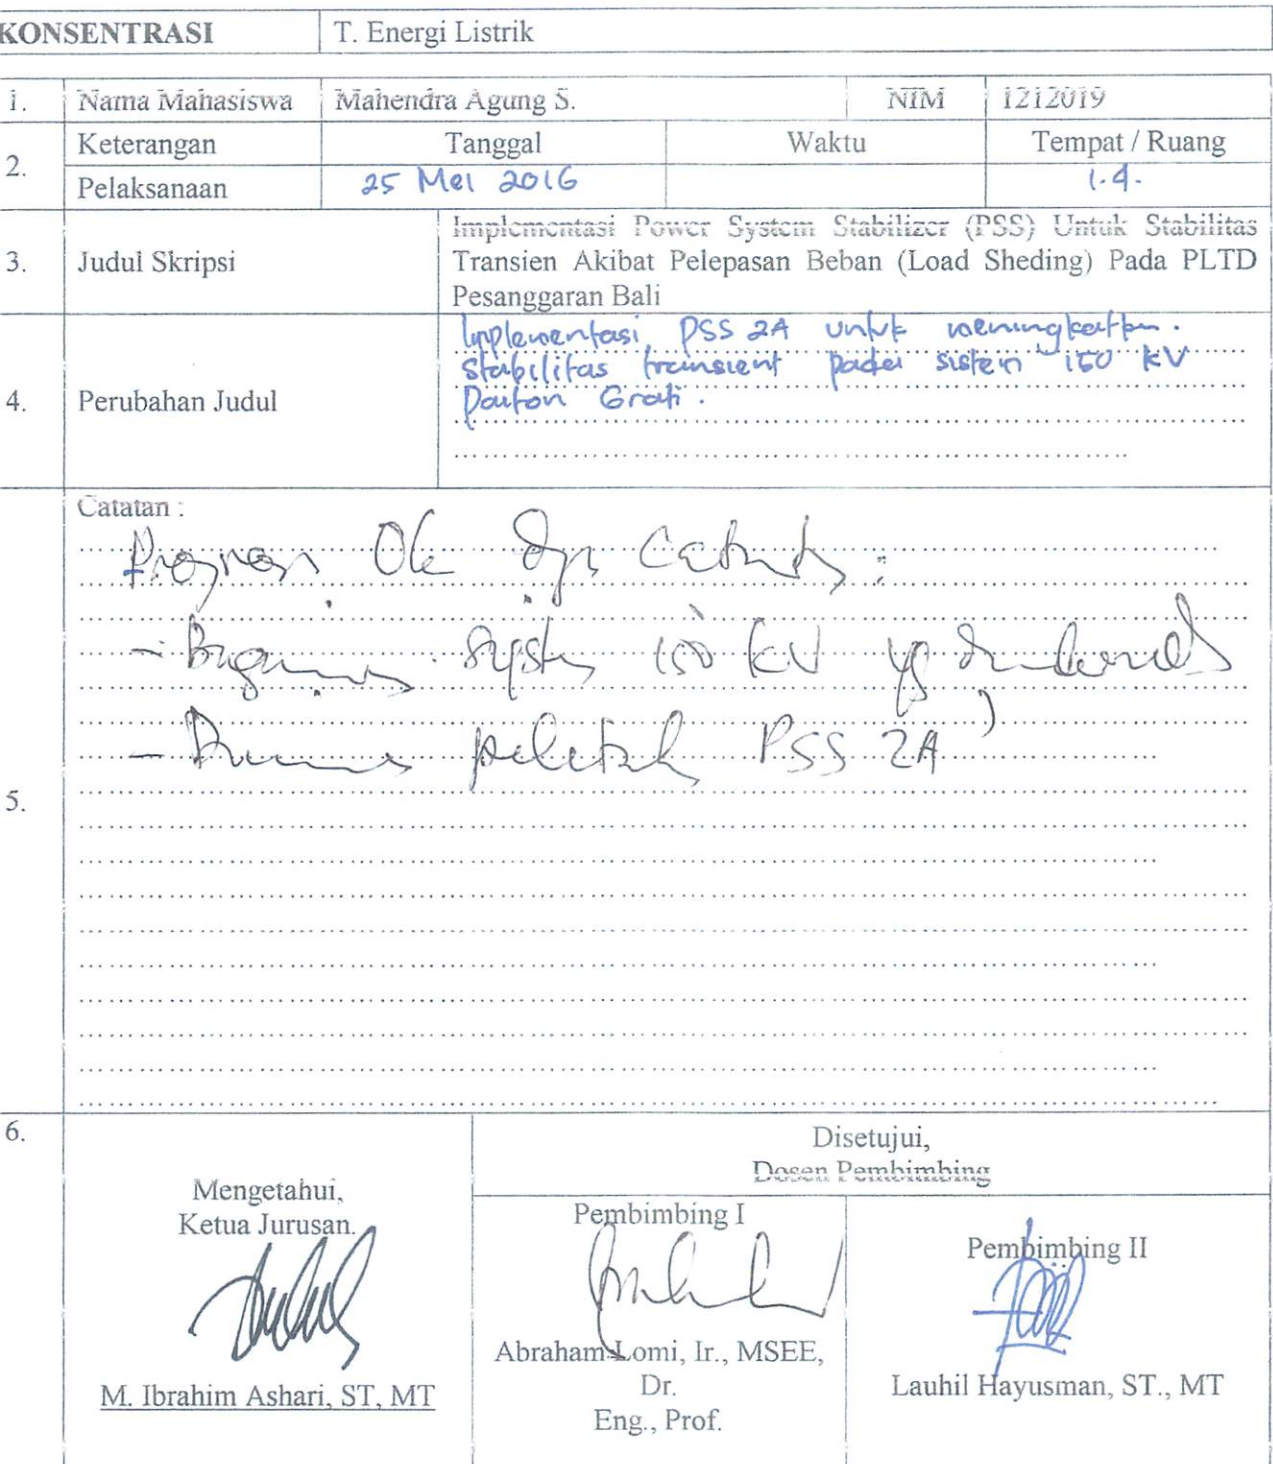 KONSENTRASI T. Energi Listrik
1. Nama Mahasiswa Mahendra Agung S. NIM 1212019
2. Keterangan Tanggal Waktu Tempat / Ruang
Pelaksanaan 25 Mei 2016 1.4.
3. Judul Skripsi
Implementasi Power System Stabilizer (PSS) Untuk Stabilitas
Transien Akibat Pelepasan Beban (Load Sheding) Pada PLTD
Pesanggaran Bali
4. Perubahan Judul
Implementasi PSS 2A untuk meningkatkan
stabilitas transient pada sistem 150 kV
Paiton Grati.
5. Catatan :
Progres Ok dgn
- system 150 kV yg
- PSS 2A
6.
Mengetahui,
Ketua Jurusan.
M. Ibrahim Ashari, ST, MT
Disetujui,
Dosen Pembimbing
Pembimbing I
Abraham Lomi, Ir., MSEE,
Dr.
Eng., Prof.
Pembimbing II
Lauhil Hayusman, ST., MT